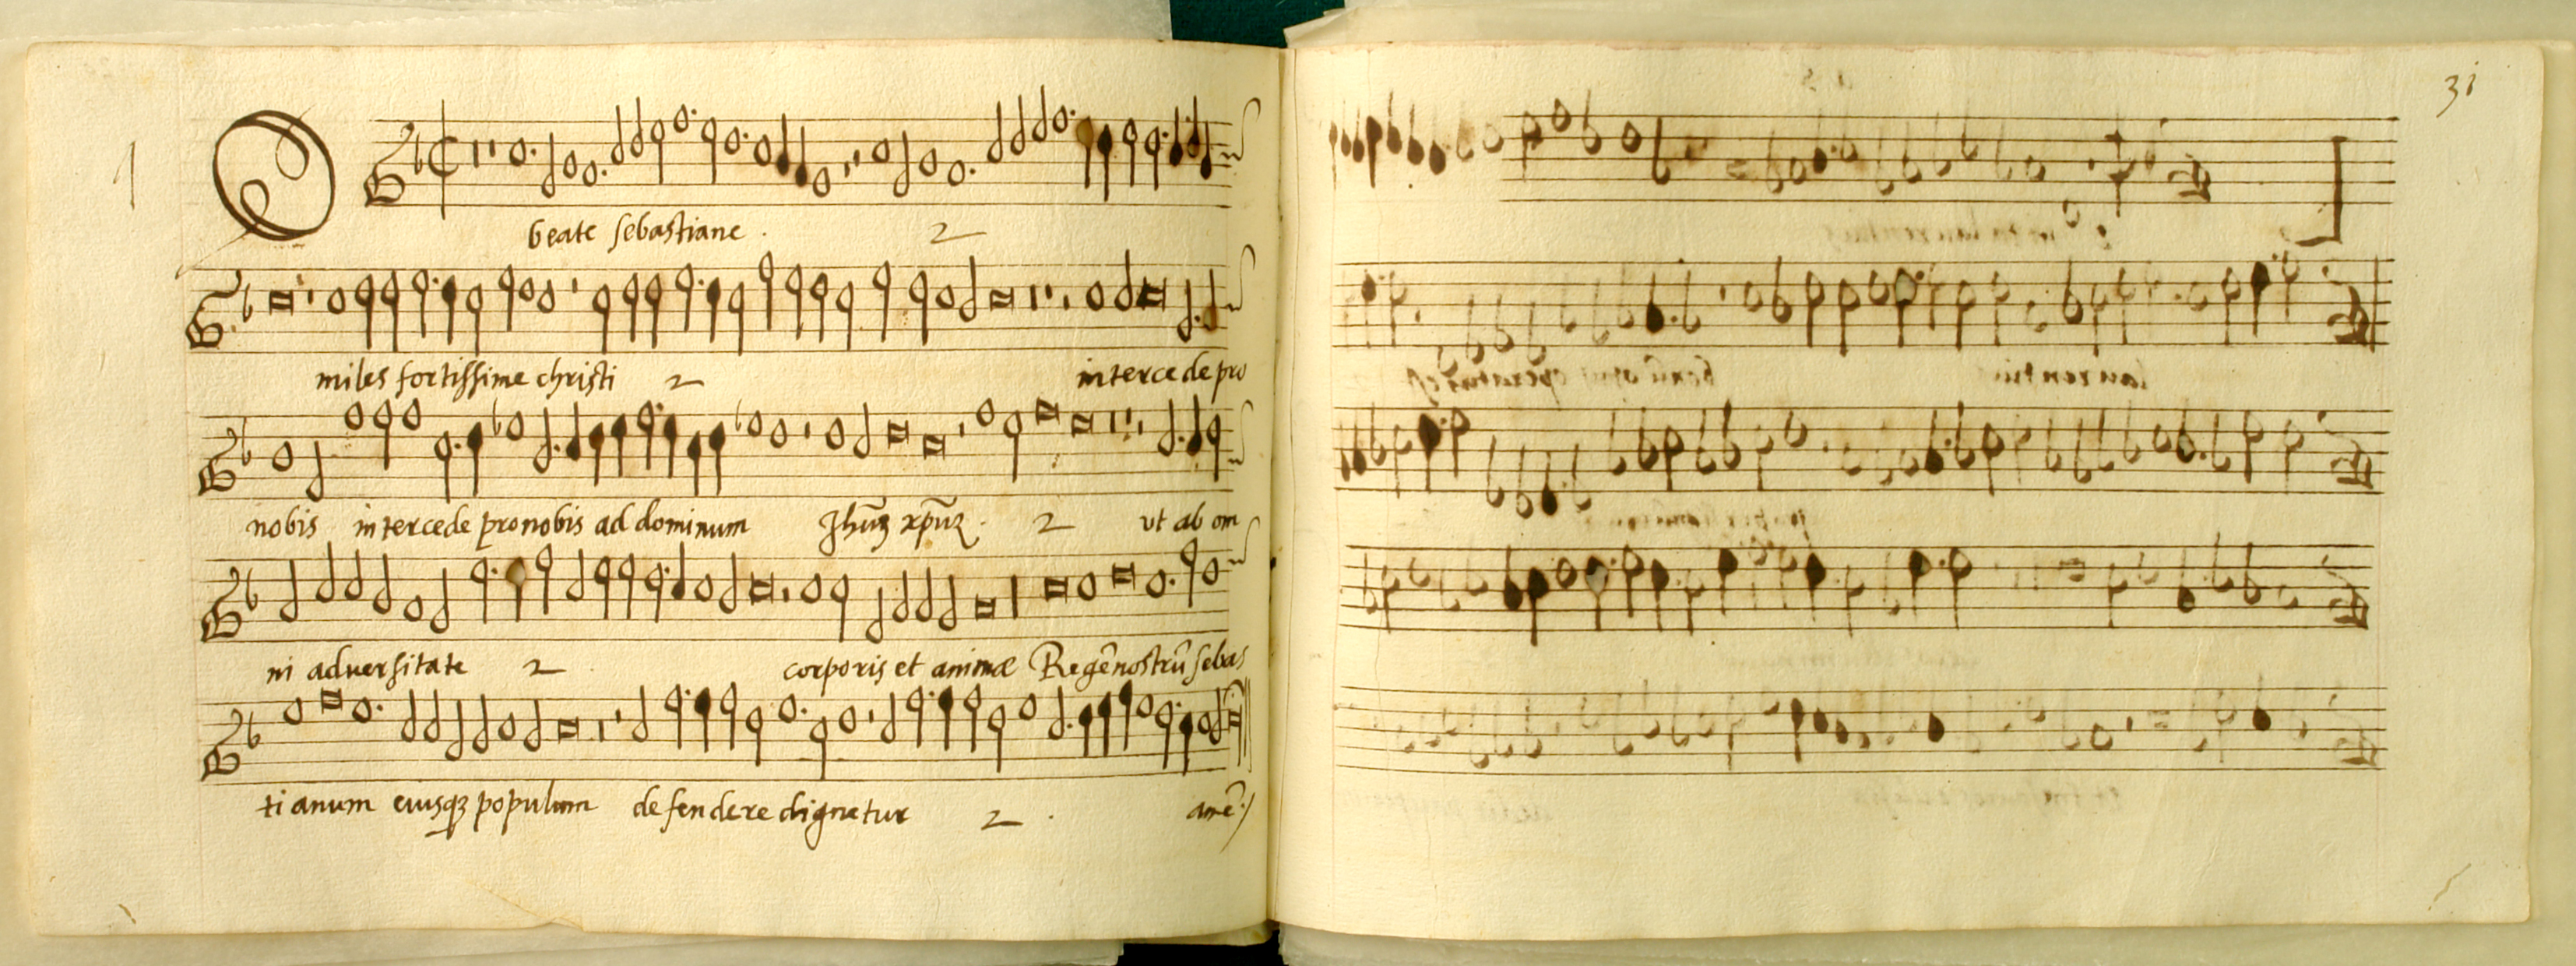 1
O beate sebastiane . 2
miles fortissime christi 2 intercede pro
nobis intercede pro nobis ad dominum Jhũȝ xpũȝ . 2 ut ab om
ni adversitate 2 corporis et animæ Regẽ nostrũ sebas
tianum eiusqȝ populum defendere dignetur 2 . amẽ
31